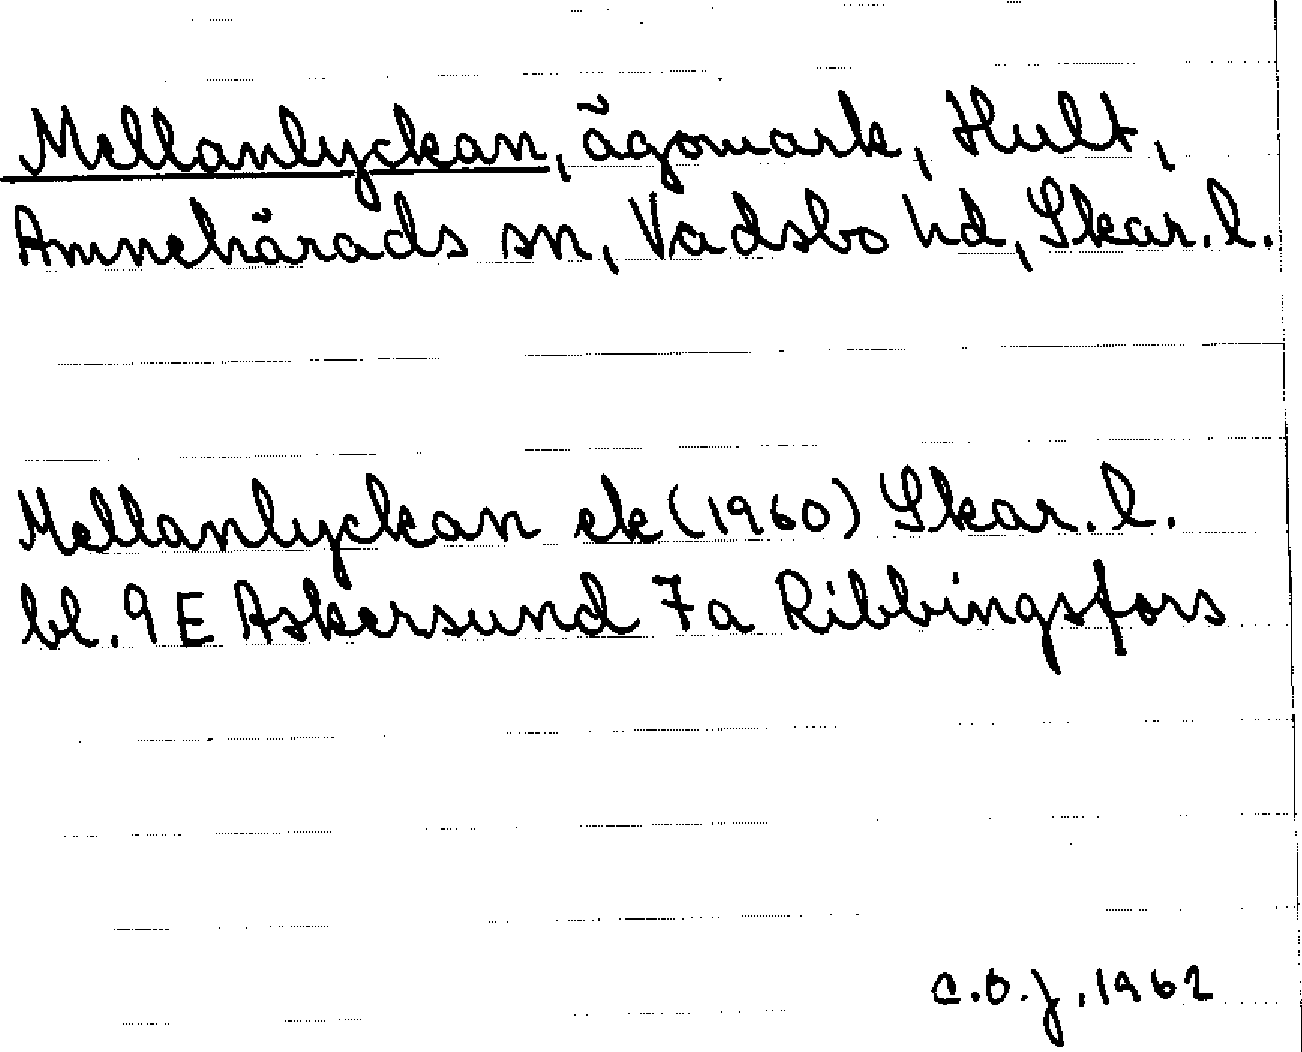 Mellanlyckan, ägomark, Hult,
Amnehärads sn, Vadsbo hd, Skar. l.
Mellanlyckan ek (1960) Skar. l.
bl. 9 E Askersund 7a Ribbingsfors
C.O.J, 1962